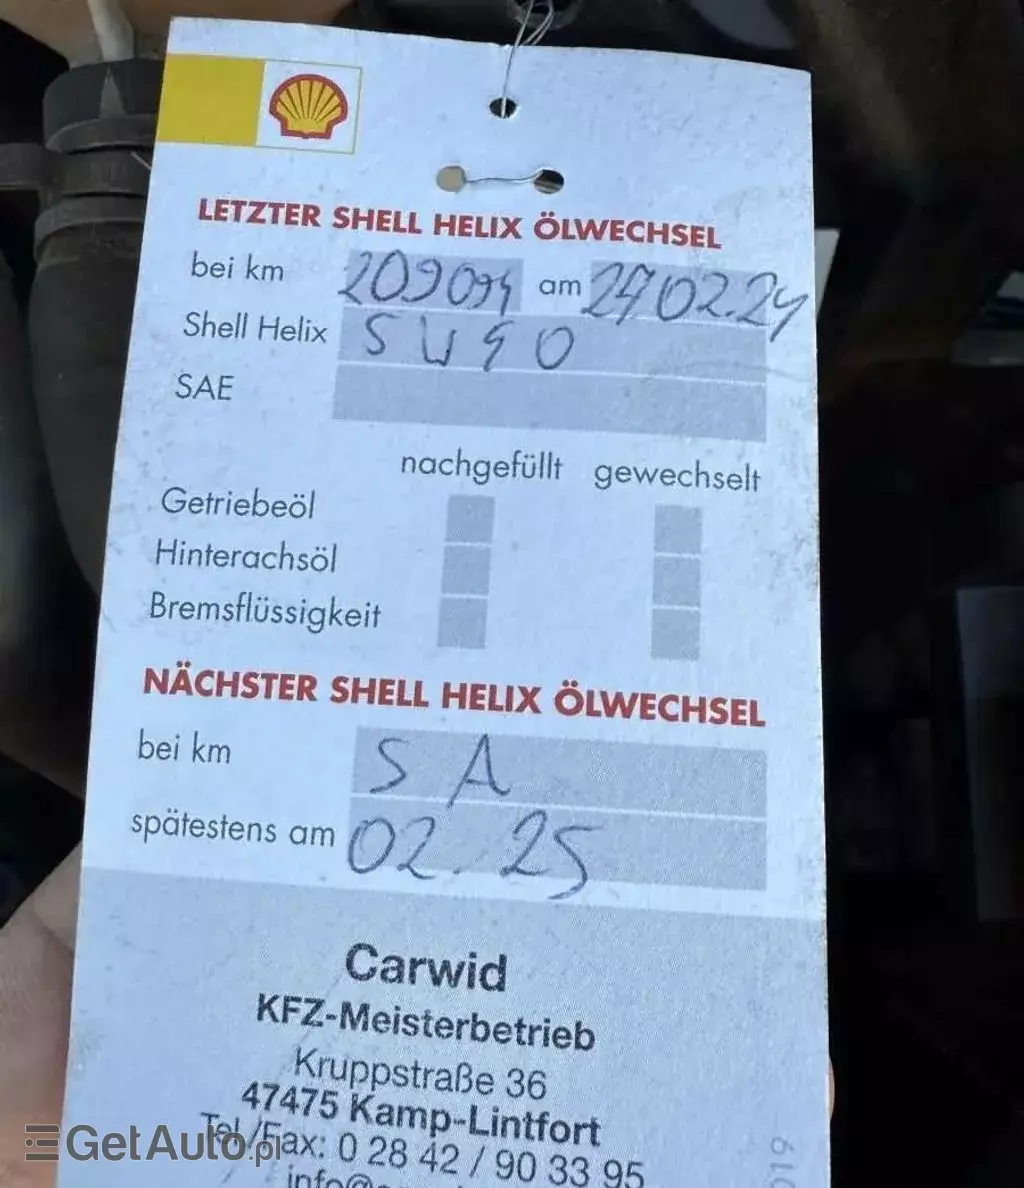 LETZTER SHELL HELIX ÖLWECHSEL
bei km 209094 am 27.02.24
Shell Helix 5W40
SAE
nachgefüllt gewechselt
Getriebeöl
Hinterachsöl
Bremsflüssigkeit
NÄCHSTER SHELL HELIX ÖLWECHSEL
bei km SA
spätestens am 02.25
Carwid
KFZ-Meisterbetrieb
Kruppstraße 36
47475 Kamp-Lintfort
Tel./Fax: 0 28 42 / 90 33 95
GetAuto.pl